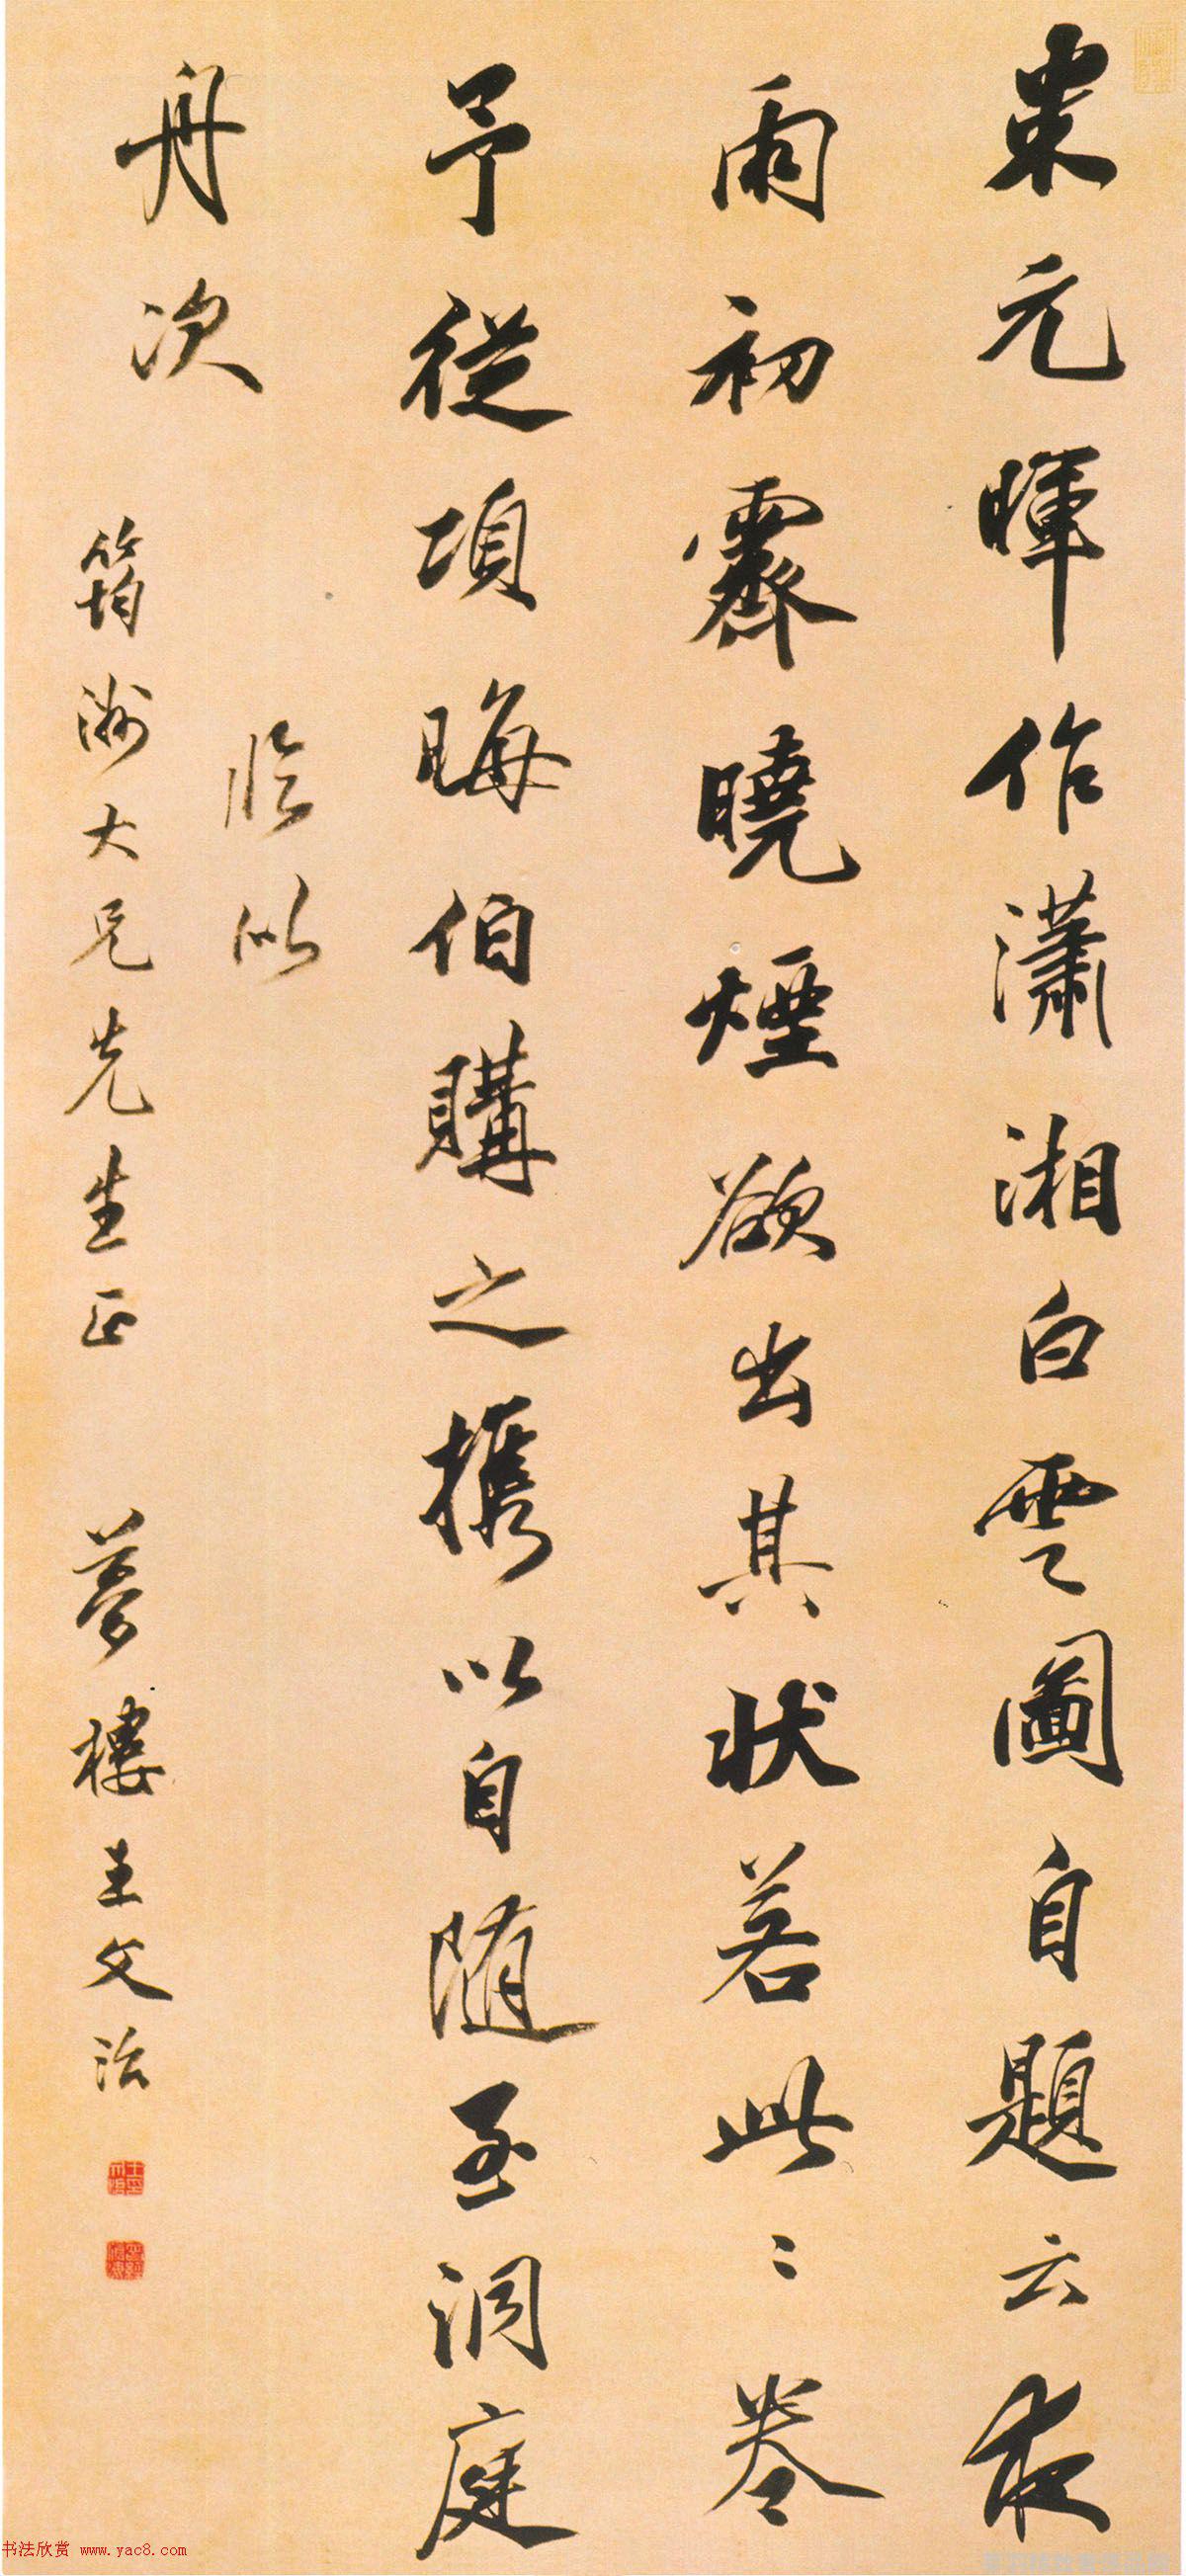 米元暉作瀟湘白雲圖自題云夜
雨初霽曉煙欲出其狀若此此卷
予從項晦伯購之攜以自隨至洞庭
舟次
臨似
筠洲大兄先生正 夢樓王文治
书法欣赏 www.yac8.com